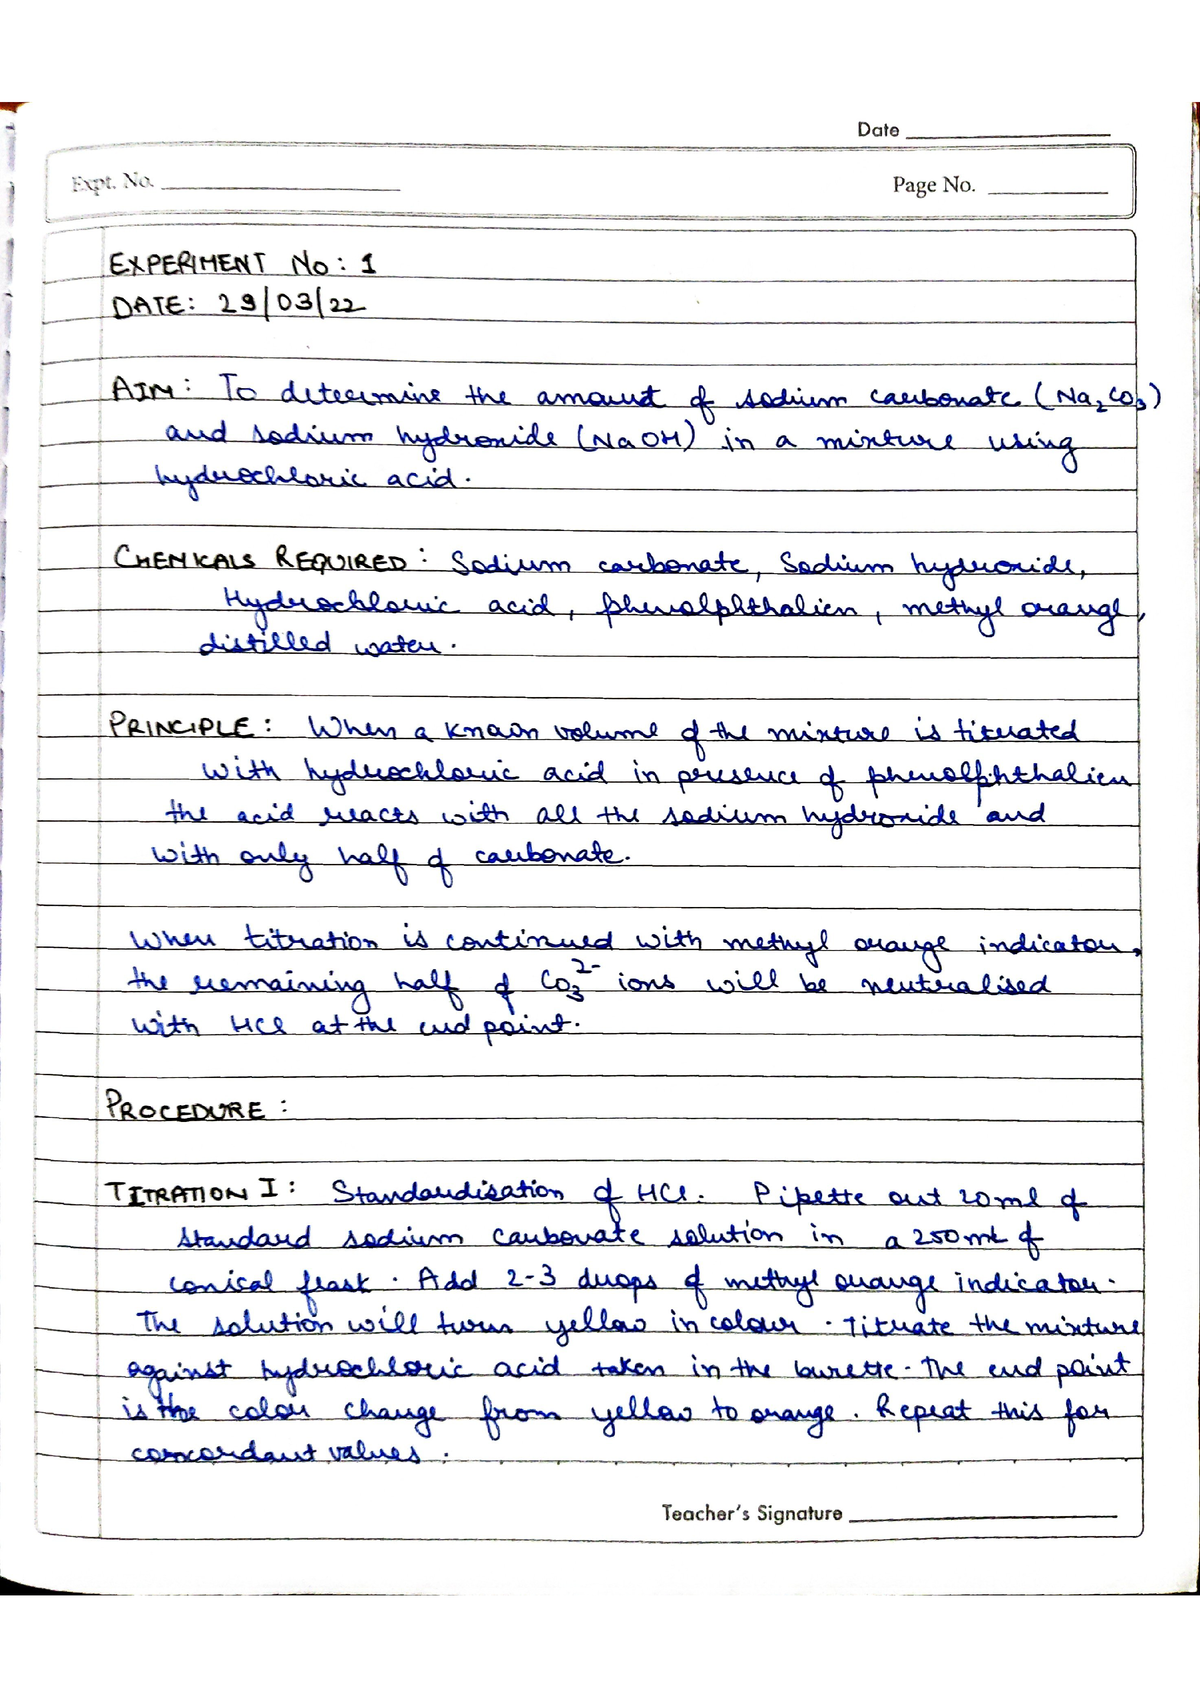 Date
Expt. No.
Page No.
EXPERIMENT No: 1
DATE: 29/03/22
AIM: To determine the amount of sodium carbonate (Na₂CO₃)
and sodium hydroxide (NaOH) in a mixture using
hydrochloric acid.
CHEMICALS REQUIRED: Sodium carbonate, Sodium hydroxide,
Hydrochloric acid, phenolphthalien, methyl orange,
distilled water.
PRINCIPLE: When a known volume of the mixture is titrated
with hydrochloric acid in presence of phenolphthalien
the acid reacts with all the sodium hydroxide and
with only half of carbonate.
When titration is continued with methyl orange indicator,
the remaining half of CO₃²⁻ ions will be neutralised
with HCl at the end point.
PROCEDURE:
TITRATION I: Standardisation of HCl. Pipette out 20ml of
standard sodium carbonate solution in a 250ml of
conical flask. Add 2-3 drops of methyl orange indicator.
The solution will turn yellow in colour. Titrate the mixture
against hydrochloric acid taken in the burette. The end point
is the colour change from yellow to orange. Repeat this for
concordant values.
Teacher's Signature